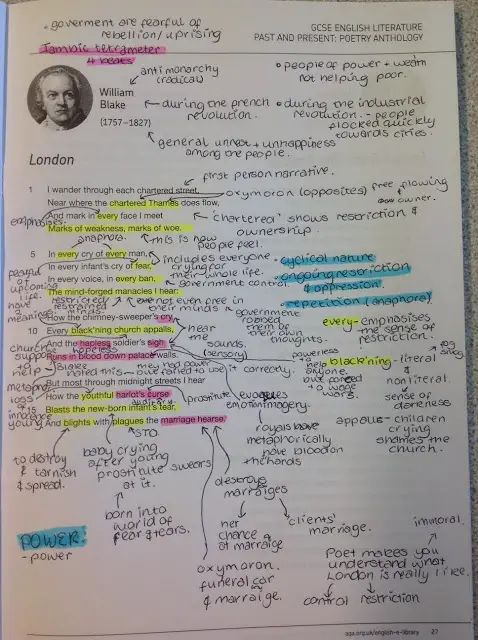 • goverment are fearful of
rebellion/uprising
GCSE ENGLISH LITERATURE
PAST AND PRESENT: POETRY ANTHOLOGY
Iambic tetrameter
4 beats
anti monarchy
(radical)
• people of power + wealth
not helping poor.
William
Blake
(1757–1827)
during the french
revolution.
• during the industrial
revolution. - people
flocked quickly
towards cities.
general unrest + unhappiness
among the people.
London
first person narrative.
1 I wander through each chartered street,
oxymoron (opposites) free flowing
owner.
Near where the chartered Thames does flow,
And mark in every face I meet
'chartered' shows restriction &
ownership.
emphasises
Marks of weakness, marks of woe.
anaphora.
this is how
people feel.
5 In every cry of every man,
includes everyone
cyclical nature
In every infant's cry of fear,
crying for
their whole life.
ongoing restriction
& oppression.
In every voice, in every ban,
government control
The mind-forged manacles I hear:
repetition (anaphora)
fearful of
upcoming
life.
restricted
restrained
minds.
not even free in
their minds
government
robbed
them of
their own
thoughts.
every - emphasises
the sense of
restriction.
How the chimney-sweeper's cry
10 Every black'ning church appalls,
hear
the
sounds.
(sensory)
And the hapless soldier's sigh
hopeless
Runs in blood down palace walls.
powerless
to
help
anyone.
but forced
to wage
wars.
black'ning - literal
&
nonliteral.
sense of
darkness
church
support
help
Blake
hated this
may had power
but failed to use it correctly.
But most through midnight streets I hear
How the youthful harlot's curse
auditory
prostitute
evogues
emotion imagery.
metaphor
loss of
innocence
young
15 Blasts the new-born infant's tear,
And blights with plagues the marriage hearse.
royals have
metaphorically
have blood on
the hands
appalls - children
crying
shames the
church.
to destroy
& tarnish
& spread.
STD
baby crying
after young
prostitute swears
at it.
destroys
marraiges
her
chance
at marraige
clients'
marriage.
born into
world of
fear & tears.
POWER:
- power
oxymoron.
funeral car
& marraige.
immoral.
Poet makes you
understand what
London is really like.
control
restriction
aqa.org.uk/english-e-library
27